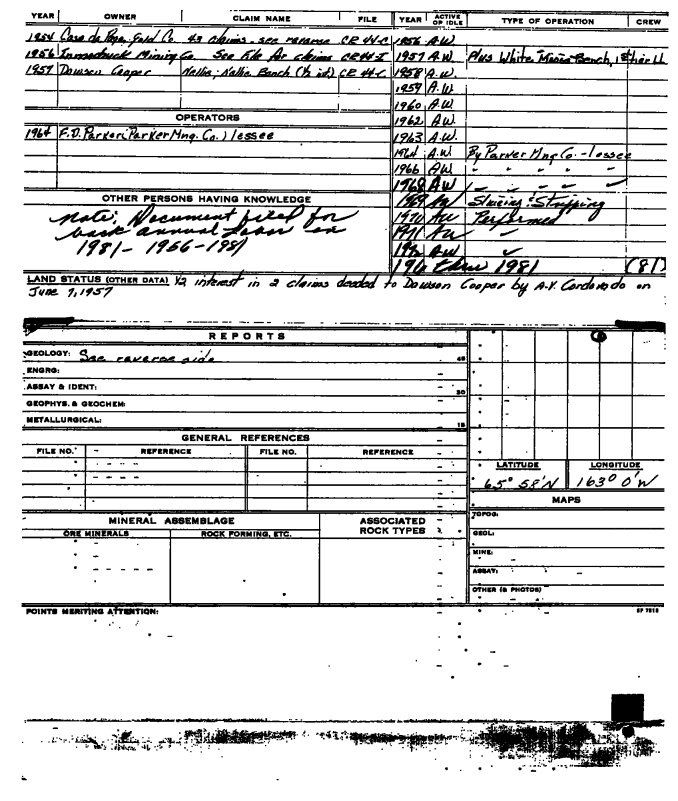 YEAR OWNER CLAIM NAME FILE YEAR ACTIVE OR IDLE TYPE OF OPERATION CREW
1954 Casa de Gold Co. 43 claims - see reverse CR 44-C 1956 A.W.
1956 Mining Co. See File for claims CR44-I 1957 A.W. Plus White Bench,
1957 Dawson Cooper Nellie, Nellie Bench (½ id) CR 44-C 1958 A.W.
1959 A.W.
1960 A.W.
OPERATORS 1962 A.W.
1964 F.D. Parker (Parker Mng. Co.) lessee 1963 A.W.
1964 A.W By Parker Mng Co. - lessee
1966 A.W " " " " "
1968 A.W
OTHER PERSONS HAVING KNOWLEDGE 1969 AW Sluicing & Stripping
note: Document filed for 1970 AW Performed
back annual labor on 1971 AW
1981 - 1966 - 1981 AW
thru 1981 (81)
LAND STATUS (OTHER DATA) ½ interest in 2 claims deeded to Dawson Cooper by A.V. Cordovado on
June 7, 1957
REPORTS
GEOLOGY: See reverse side 45
ENGRG:
ASSAY & IDENT: 30
GEOPHYS. & GEOCHEM:
METALLURGICAL: 15
GENERAL REFERENCES
FILE NO. REFERENCE FILE NO. REFERENCE
LATITUDE LONGITUDE
65° 58'N 163° 0'W
MAPS
MINERAL ASSEMBLAGE ASSOCIATED ROCK TYPES TOPOG:
ORE MINERALS ROCK FORMING, ETC. GEOL:
MINE:
ASSAY:
OTHER (& PHOTOS)
POINTS MERITING ATTENTION: